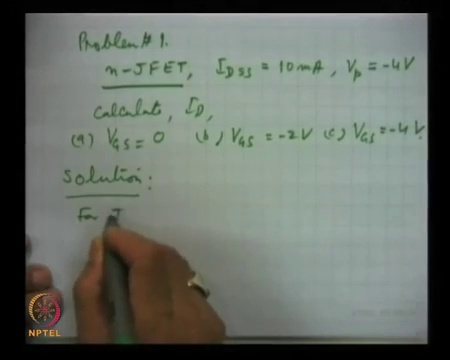 Problem # 1.
n-JFET, IDSS = 10 mA, Vp = -4V
Calculate, ID,
(a) VGS = 0 (b) VGS = -2V (c) VGS = -4V.
Solution:
For J
NPTEL